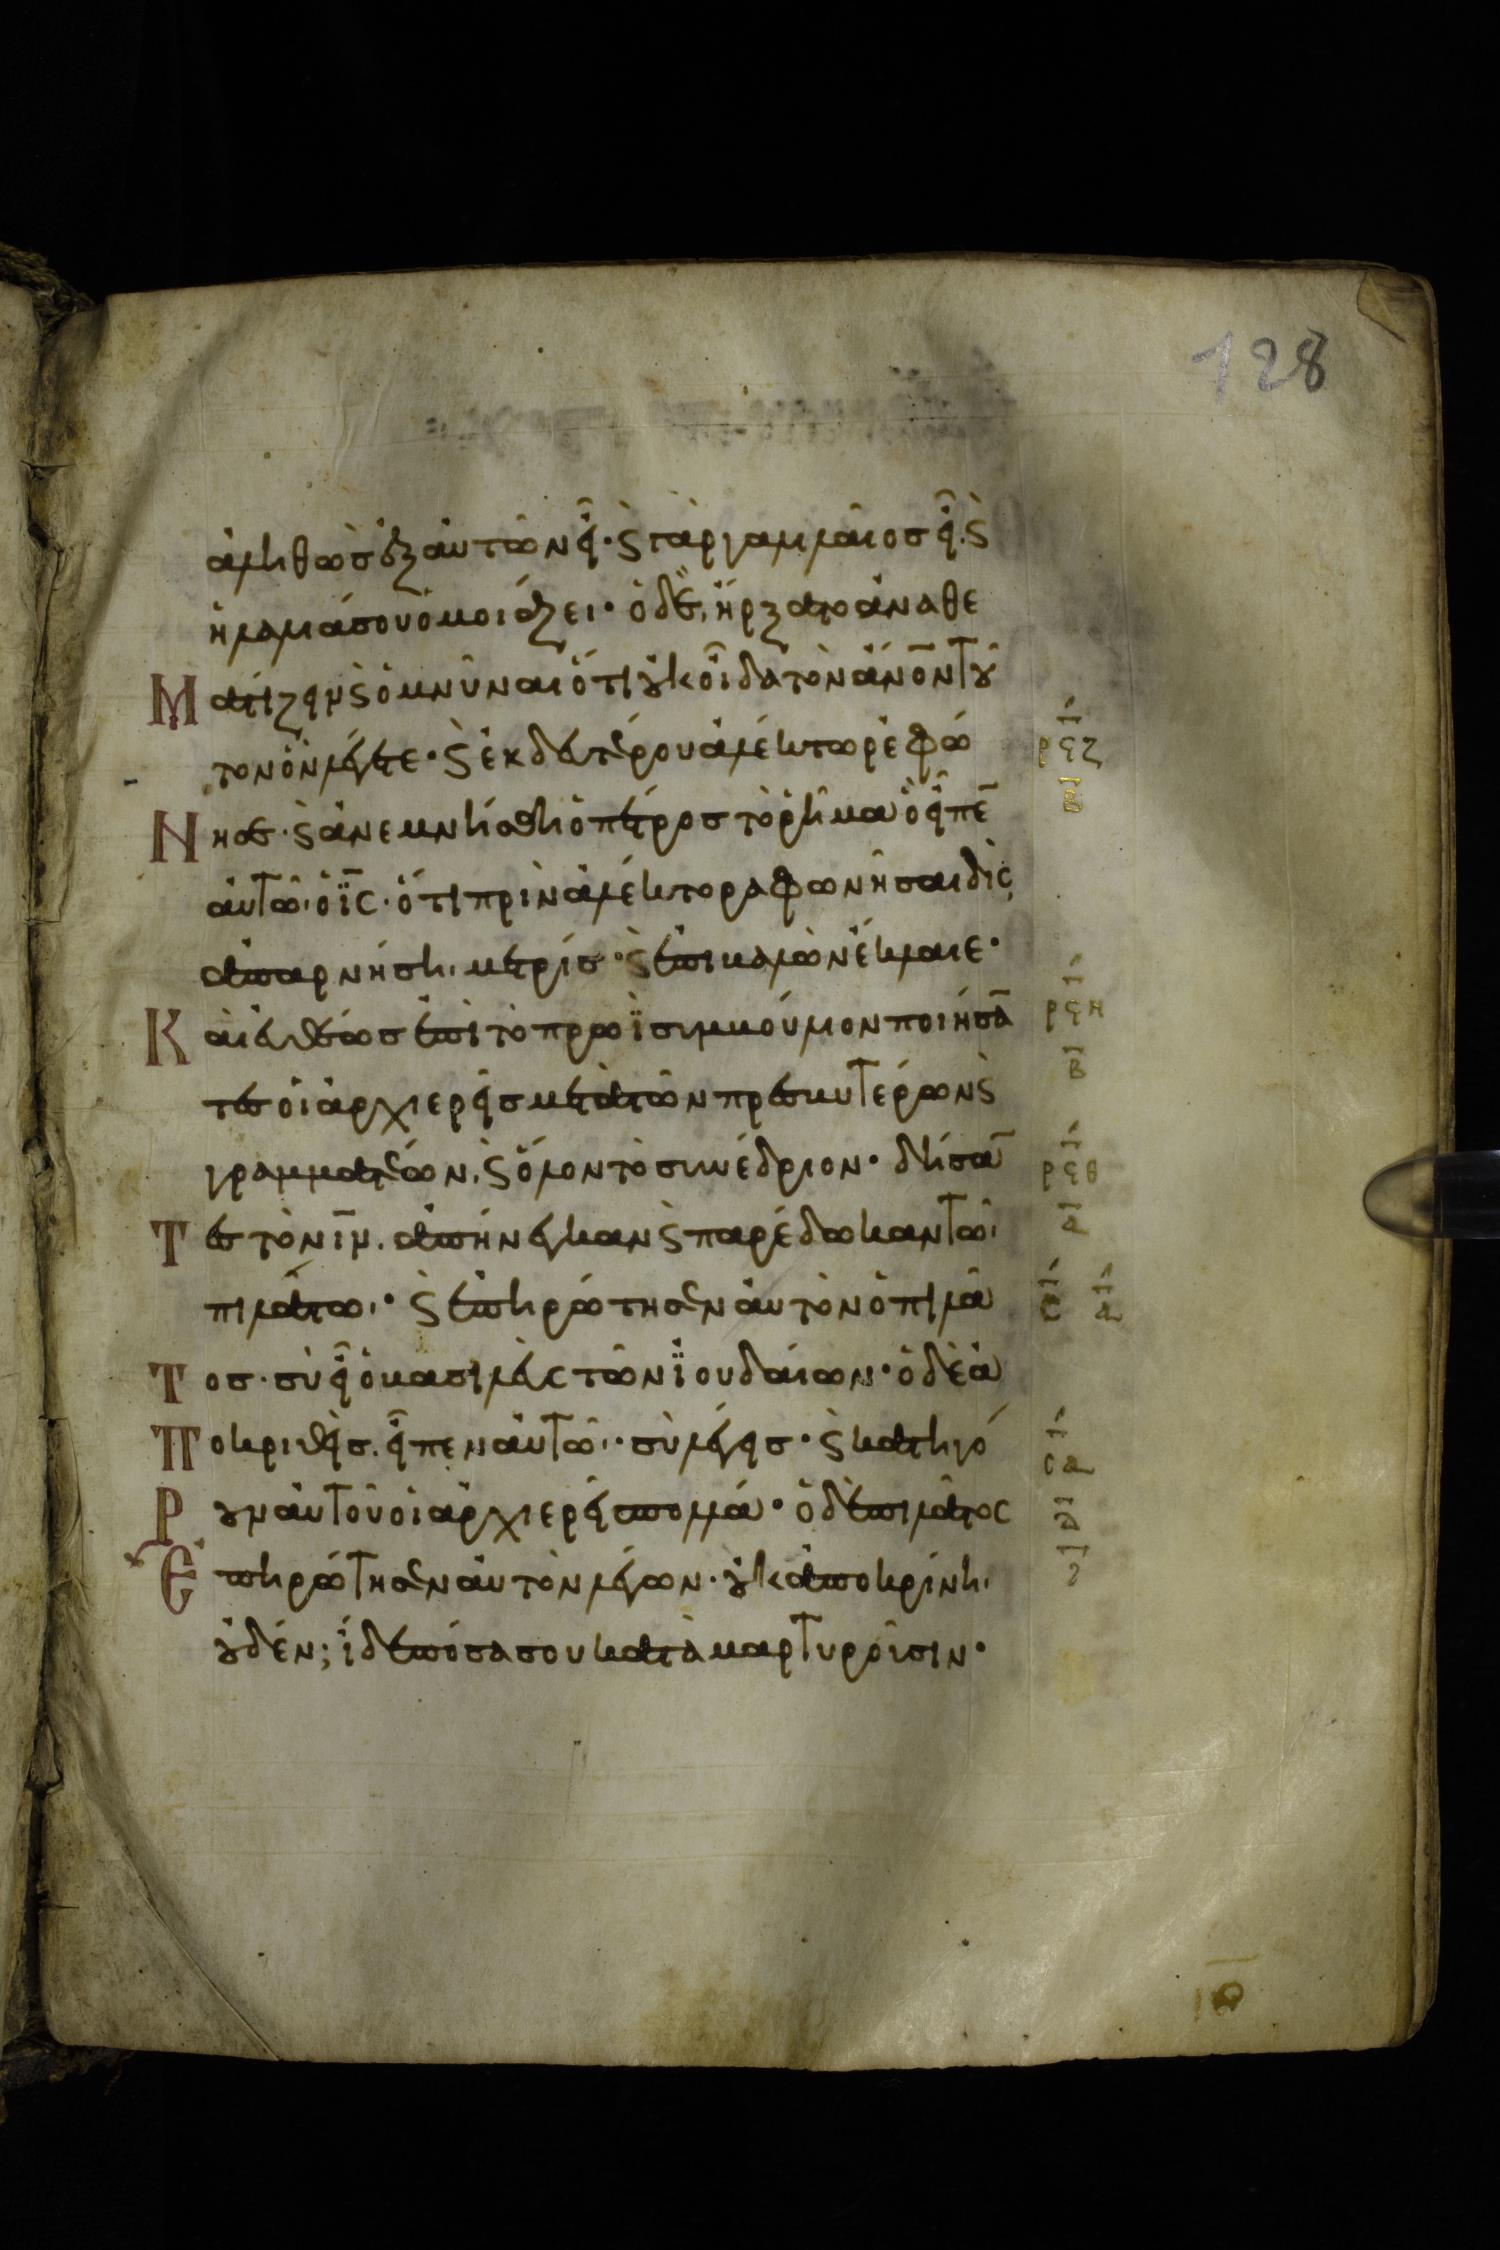 128
ἀληθῶσ ἐξ αὐτῶν εἶ· ϛ γὰρ γαλιλαῖοσ εἶ. ϛ
ἡ λαλιάσου ὁμοιάζει· ὁ δὲ, ἤρξατο ἀναθε
Ματίζειν ϛ ὀμνῦναι ὅτι οὐκ οἶδα τὸν ἄν̅ο̅ν̅ τοῦ
τον ὃν λέγετε· ϛ ἐκ δευτέρου ἀλέκτωρ ἐφώ
Νησε· ϛ ἀνεμνήσθη ὁ πέτροσ τὸ ῥῆμα ὃ εἶπε̅
αὐτῶ· ὁ ι̅ς̅· ὅτι πρὶν ἀλέκτορα φωνῆσαι δὶς
ἀπαρνήση με τρίσ· ϛ ἐπιβαλὼν ἔκλαιε·
Καὶ εὐθέωσ ἐπὶ τὸ πρωῒ συμβούλιον ποιήσα̅
τεσ οἱ ἀρχιερεῖσ μετὰ τῶν πρεσβυτέρων ϛ
γραμματέων, ϛ ὅλον τὸ συνέδριον· δήσα̅
Τεσ τὸν ι̅ν̅. ἀπήνεγκαν ϛ παρέδωκαν τῶ
πιλάτω· ϛ ἐπηρώτησεν αὐτὸν ὁ πιλᾶ
Τοσ· σὺ εἶ ὁ βασιλεὺς τῶν ϊουδαίων· ὁ δὲ ἀ
Ποκριθεὶσ. εἶπεν αὐτῶ· σὺ λέγεισ· ϛ κατηγό
Ρουν αὐτοῦ οἱ ἀρχιερεῖσ πολλά· ὁ δὲ πιλᾶτος
Ἐπηρώτησεν αὐτὸν λέγων· οὐκ ἀποκρίνη
οὐδέν; ἴδε πόσα σου καταμαρτυροῦσιν·
ρϟζ
β
ρϟη
β
ρϟθ
α
ς α
σα
δ